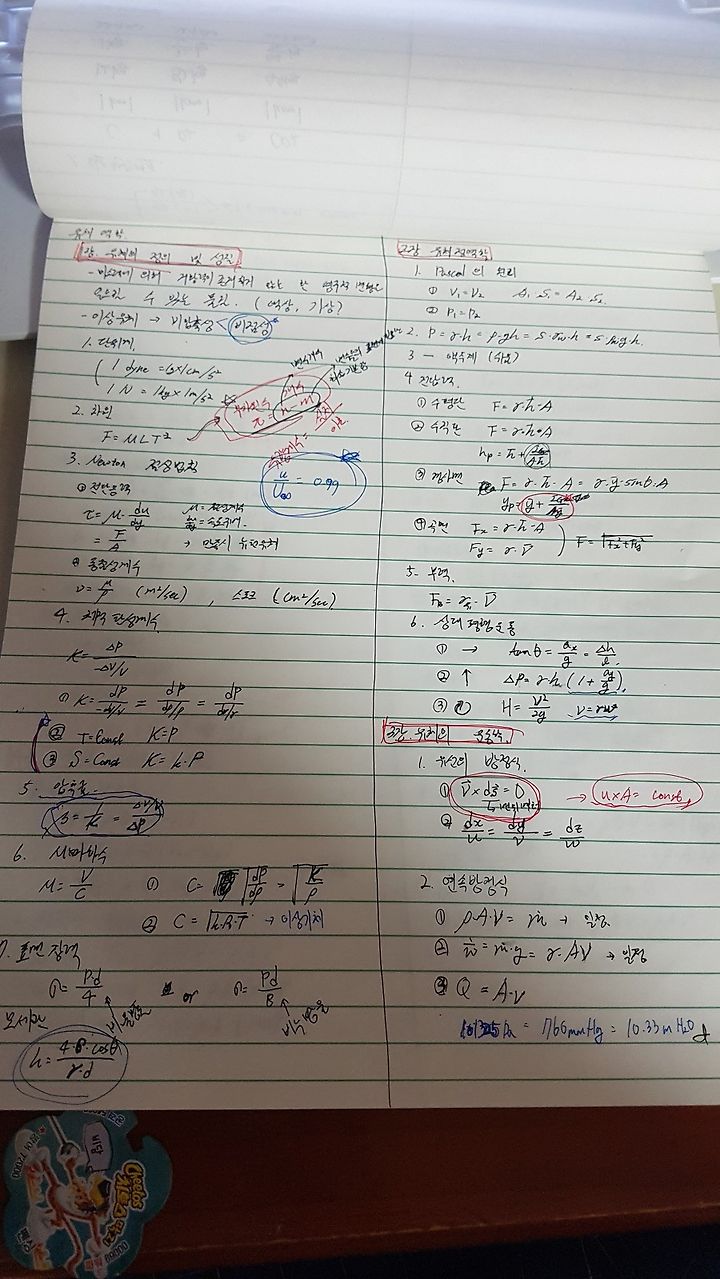 유체역학
1장. 유체의 정의 및 성질
- 미소한 힘에 의해 저항력이 존재하지 않는 한 영구적 변형을
일으킬 수 있는 물질. (액상, 기상)
- 이상유체 → 비압축성, 비점성
1. 단위계.
1 dyne = 1g×1cm/s²
1 N = 1kg×1m/s²
π = n - m
2. 차원
F = MLT⁻²
3. Newton 점성법칙
① 전단응력
τ = μ · du/dy
= F/A
→ 만족시 뉴턴유체
u/U∞ = 0.99
② 동점성계수
ν = μ/ρ (m²/sec), 스토크 (cm²/sec)
4. 체적탄성계수.
K = ΔP / -ΔV/V
① K = dP / -dV/V = dP / dρ/ρ = dP / dr/r
② T = Const K = P
③ S = Const K = k·P
5. 압축률
β = 1/K = ΔV/V / ΔP
6. 마하수
M = V/C ① C = √dP/dρ = √K/ρ
② C = √k·R·T → 이상기체
7. 표면장력
σ = Pd/4 or σ = Pd/8
물방울
비눗방울
모세관
h = 4·σ·cosθ / γ·d
2장 유체정역학
1. Pascal의 원리
① V₁ = V₂ A₁·S₁ = A₂·S₂
② P₁ = P₂
2. P = γ·h = ρ·gh = S·γw·h = S·ρw·g·h.
3. 액주계 (쉬움)
4. 전압력.
① 수평면 F = γ·h·A
② 수직면 F = γ·h̄·A
hp = h̄ +
③ 경사면 F = γ·h̄·A = γ·y·sinθ·A
yp = y +
④ 곡면 Fx = γ·h̄·A
Fy = γ·V
F = √Fx²+Fy²
5. 부력.
FB = γ · V
6. 상대평형운동
① → tanθ = ax/g = Δh/l
② ↑ ΔP = γ·h (1 + ay/g)
③ H = V²/2g V = rw
3장. 유체의 운동학.
1. 유선의 방정식.
① V × ds = 0
→ u×A = const.
② dx/u = dy/v = dz/w
2. 연속방정식
① ρ·A·V = ṁ → 일정
② ẇ = ṁ·g = γ·AV → 일정
③ Q = A·V
101325Pa = 760mmHg = 10.33mH₂O
Cheetos